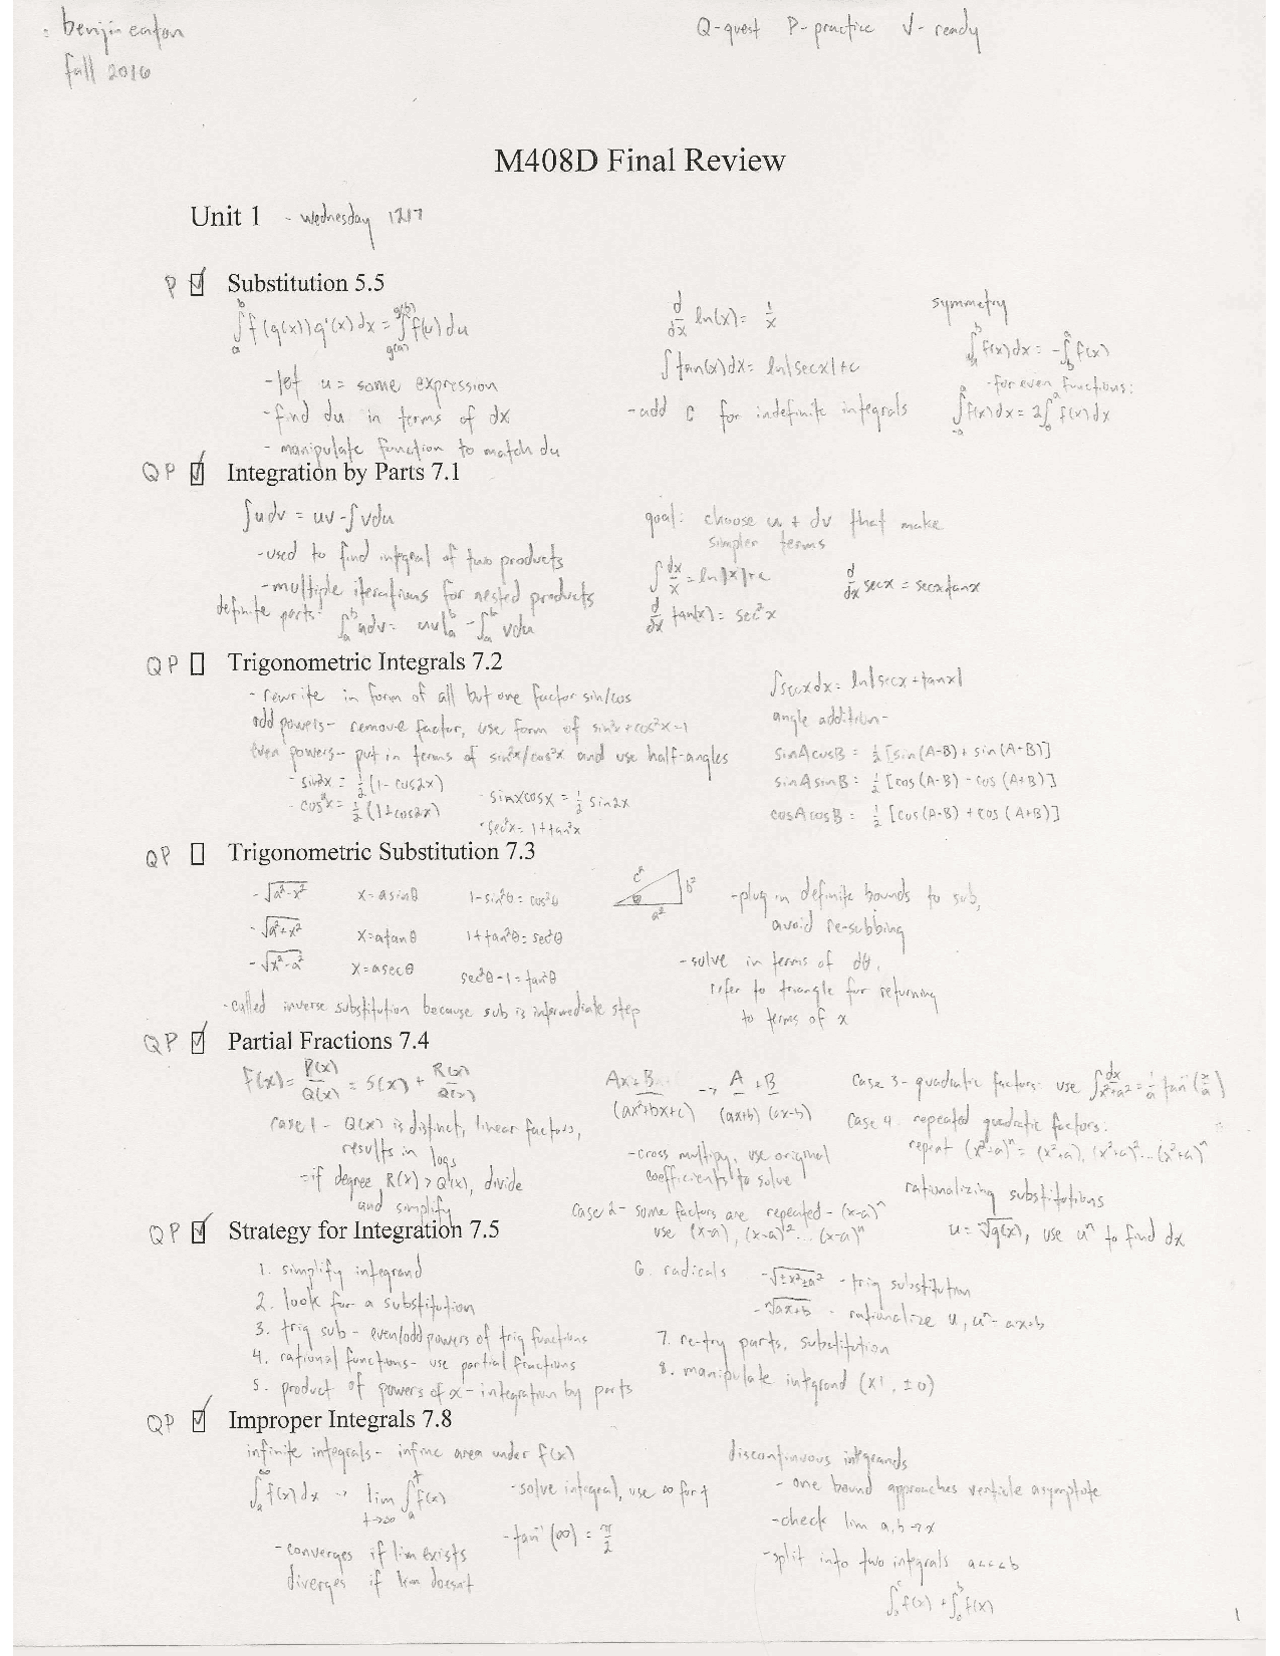 benjin eaton
fall 2016
Q-quest P-practice √- ready
M408D Final Review
Unit 1 - wednesday 12/7
P ☑ Substitution 5.5
∫_a^b f(g(x))g'(x)dx = ∫_{g(a)}^{g(b)} f(u)du
- let u = some expression
- find du in terms of dx
- manipulate function to match du
d/dx ln(x) = 1/x
∫tan(x)dx = ln|secx|+c
- add C for indefinite integrals
symmetry
∫_a^b f(x)dx = -∫_b^a f(x)
- for even functions:
∫_{-a}^a f(x)dx = 2∫_0^a f(x)dx
QP ☑ Integration by Parts 7.1
∫udv = uv-∫vdu
- used to find integral of two products
- multiple iterations for nested products
definite parts: ∫_a^b udv = uv|_a^b - ∫_a^b vdu
goal: choose u + dv that make
simpler terms
∫dx/x = ln|x|+c
d/dx secx = secxtanx
d/dx tan(x) = sec²x
QP ☐ Trigonometric Integrals 7.2
- rewrite in form of all but one factor sin/cos
odd powers- remove factor, use form of sin²x+cos²x=1
even powers- put in terms of sin²x/cos²x and use half-angles
- sin²x = 1/2(1-cos2x)
- cos²x = 1/2(1+cos2x)
- sinxcosx = 1/2 sin2x
- sec²x = 1+tan²x
∫secxdx = ln|secx+tanx|
angle addition-
sinAcosB = 1/2[sin(A-B)+sin(A+B)]
sinAsinB = 1/2[cos(A-B)-cos(A+B)]
cosAcosB = 1/2[cos(A-B)+cos(A+B)]
QP ☐ Trigonometric Substitution 7.3
- √a²-x² x=asinθ 1-sin²θ=cos²θ
- √a²+x² x=atanθ 1+tan²θ=sec²θ
- √x²-a² x=asecθ sec²θ-1=tan²θ
- called inverse substitution because sub is intermediate step
c² b² θ a²
- plug in definite bounds to sub,
avoid re-subbing
- solve in terms of dθ,
refer to triangle for returning
to terms of x
QP ☑ Partial Fractions 7.4
f(x) = P(x)/Q(x) = S(x) + R(x)/Q(x)
case 1 - Q(x) is distinct, linear factors,
results in logs
- if degree R(x) > Q(x), divide
and simplify
Ax+B/(ax²+bx+c) → A/(ax+b) + B/(ax-b)
- cross multipy, use original
coefficients to solve
case 2- some factors are repeated- (x-a)^n
use (x-a), (x-a)²... (x-a)^n
case 3- quadratic factors use ∫dx/x²+a² = 1/a tan⁻¹(x/a)
case 4. repeated quadratic factors:
repeat (x²+a)^n = (x²+a), (x²+a)²... (x²+a)^n
rationalizing substitutions
u = ⁿ√g(x), use u^n to find dx
QP ☑ Strategy for Integration 7.5
1. simplify integrand
2. look for a substitution
3. trig sub - even/odd powers of trig functions
4. rational functions- use partial fractions
5. product of powers of x - integration by parts
6. radicals - √±x²±a² - trig substitution
- ⁿ√ax+b - rationalize u, u^n = ax+b
7. re-try parts, substitution
8. manipulate integrand (x1, ±0)
QP ☑ Improper Integrals 7.8
infinite integrals- infine area under f(x)
∫_a^∞ f(x)dx → lim t→∞ ∫_a^t f(x)
- converges if lim exists
diverges if lim doesnt
- solve integral, use ∞ for t
- tan⁻¹(∞) = π/2
discontinuous integrands
- one bound approaches verticle asymptote
- check lim a,b→x
- split into two integrals a<c<b
∫_a^c f(x) + ∫_c^b f(x)
1